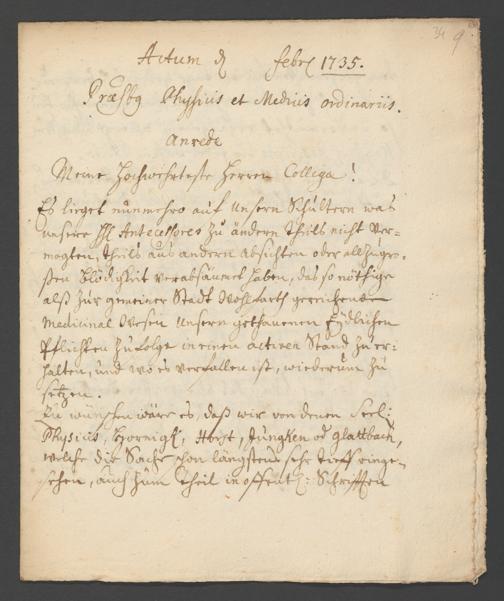 9
Actum d febr 1735.
Præsbg Physicis et Medicis ordinariis.
Anrede
Meine Hochwehrteste Herren Collega!
Es lieget nunmehro auf unsern Schultern was
unsere HH Antecessores zu ändern theils nicht ver-
mogten, theils aus andern Absichten oder allzugro-
ßen blödigkeit verabsäumet haben, das so nöthige
alß zur gemeiner Stadt Wohlfarth gereichende
Medicinal Wesen unsern gethanenen Eydlichen
Pflichten zufolge in einen activen Stand zu er-
halten, und wo es verfallen ist, wiederum zu
setzen.
Zu wünschen wäre es, daß wir von denen Seel:
Physicis, Hornigk, Horst, Jungken od Glattbach,
welche die Sache schon längstens sehr tieff einge-
sehen, auch zum Theil in offentl: Schrifften